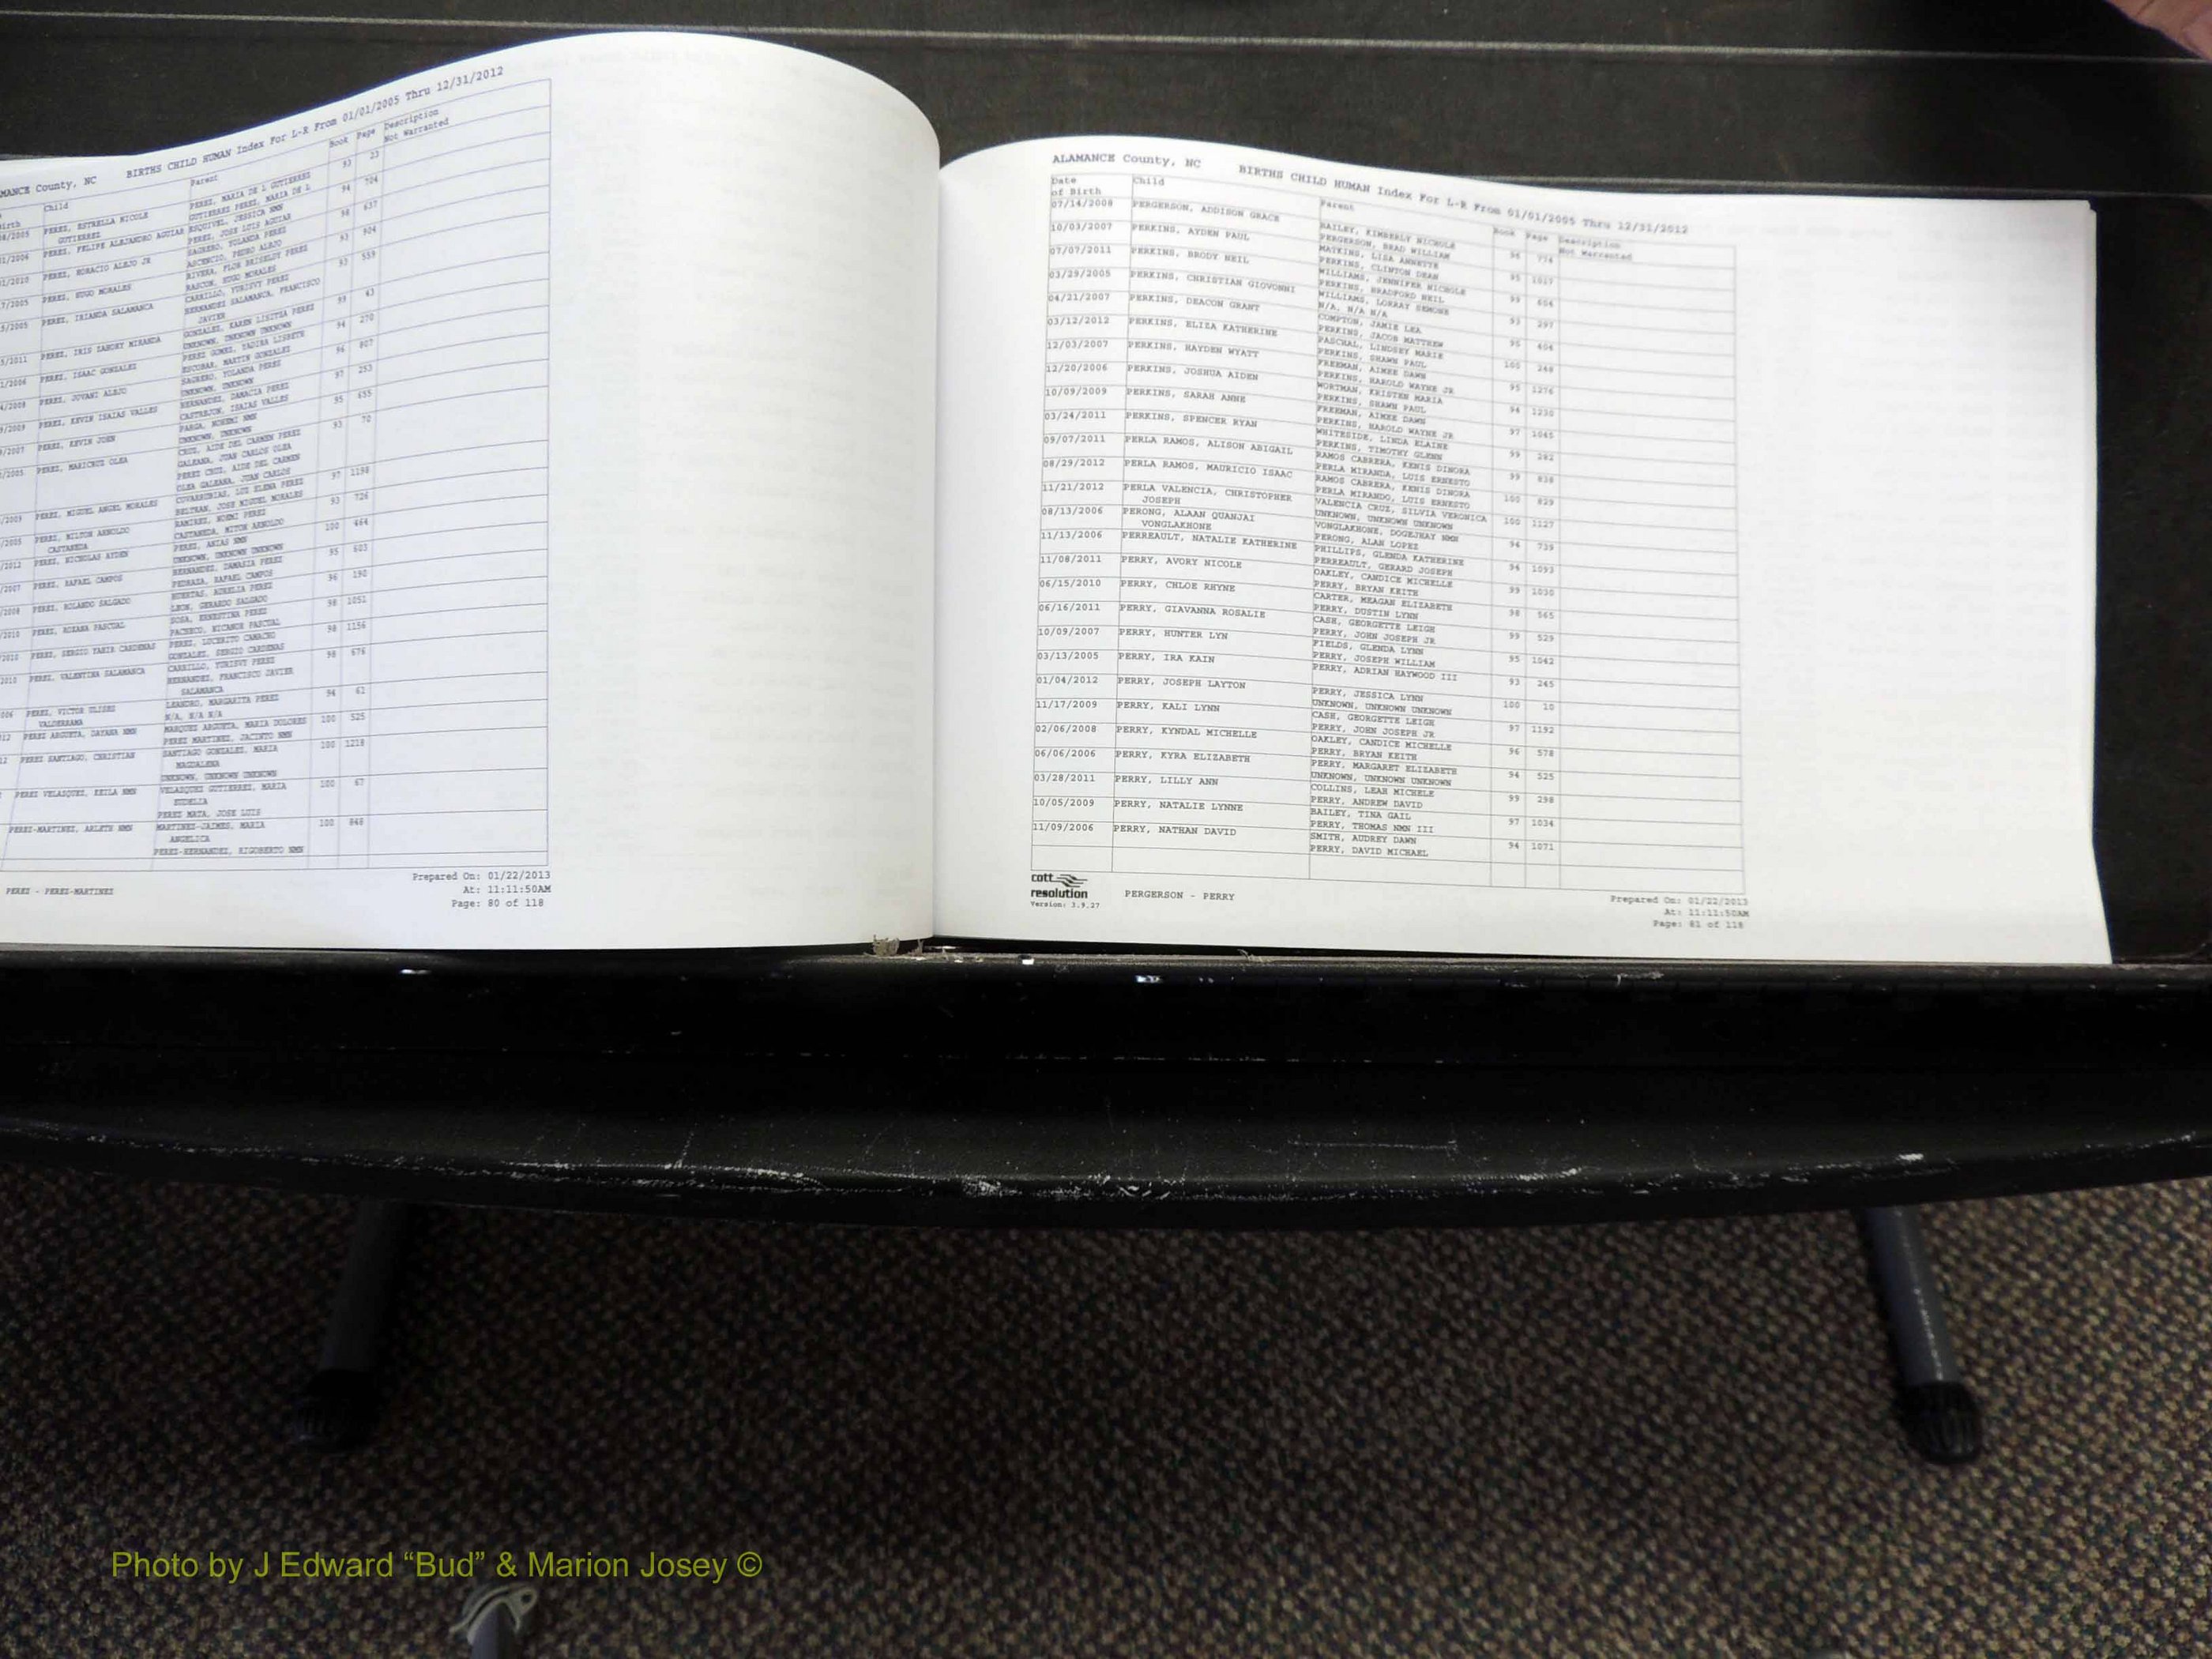 MANCE County, NC BIRTHS CHILD HUMAN Index For L-R From 01/01/2005 Thru 12/31/2012
Birth Child Parent Book Page Description
Not Warranted
PEREZ, ESTRELLA NICOLE PEREZ, MARIA DE L GUTIERREZ 93 23
GUTIERREZ GUTIERREZ PEREZ, MARIA DE L
/2006 PEREZ, FELIPE ALEJANDRO AGUIAR ESQUIVEL, JESSICA NMN 94 704
PEREZ, JOSE LUIS AGUIAR
/2010 PEREZ, HORACIO ALEJO JR SAGRERO, YOLANDA PEREZ 98 637
ASCENCIO, PEDRO ALEJO
/2005 PEREZ, HUGO MORALES RIVERA, FLOR BRISELDY PEREZ 93 904
RASCON, HUGO MORALES
/2005 PEREZ, IRIANDA SALAMANCA CARRILLO, YURISVY PEREZ 93 559
HERNANDEZ SALAMANCA, FRANCISCO
JAVIER
/2011 PEREZ, IRIS ZAHORY MIRANDA GONZALEZ, KAREN LISUTSA PEREZ 99 43
UNKNOWN, UNKNOWN UNKNOWN
/2006 PEREZ, ISAAC GONZALEZ PEREZ GOMEZ, YADIRA LISBETH 94 270
ESCOBAR, MARTIN GONZALEZ
/2008 PEREZ, JOVANI ALEJO SAGRERO, YOLANDA PEREZ 96 807
UNKNOWN, UNKNOWN
/2009 PEREZ, KEVIN ISAIAS VALLES HERNANDEZ, DAMACIA PEREZ 97 253
CASTREJON, ISAIAS VALLES
/2007 PEREZ, KEVIN JOHN PARGA, NOHEMI NMN 95 655
UNKNOWN, UNKNOWN
/2005 PEREZ, MARICRUZ OLEA CRUZ, AIDE DEL CARMEN PEREZ 93 70
GALEANA, JUAN CARLOS OLEA
PEREZ CRUZ, AIDE DEL CARMEN
OLEA GALEANA, JUAN CARLOS
/2009 PEREZ, MIGUEL ANGEL MORALES COVARRUBIAS, LUZ ELENA PEREZ 97 1198
BELTRAN, JOSE MIGUEL MORALES
/2005 PEREZ, MILTON ARNOLDO RAMIREZ, NOEMI PEREZ 93 726
CASTANEDA CASTANEDA, MITON ARNOLDO
/2012 PEREZ, NICHOLAS AYDEN PEREZ, ANIAS NMN 100 464
UNKNOWN, UNKNOWN UNKNOWN
/2007 PEREZ, RAFAEL CAMPOS HERNANDEZ, DAMASIA PEREZ 95 603
PEDRAZA, RAFAEL CAMPOS
/2008 PEREZ, ROLANDO SALGADO HUERTAS, AURELIA PEREZ 96 190
LEON, GERARDO SALGADO
/2010 PEREZ, ROXANA PASCUAL SOSA, ERNESTINA PEREZ 98 1051
PACHECO, NICANOR PASCUAL
2010 PEREZ, SERGIO YAHIR CARDENAS PEREZ, LUCERITO CAMACHO 98 1156
GONZALEZ, SERGIO CARDENAS
2010 PEREZ, VALENTINA SALAMANCA CARRILLO, YURISVY PEREZ 98 676
HERNANDEZ, FRANCISCO JAVIER
SALAMANCA
006 PEREZ, VICTOR ULISES LEANDRO, MARGARITA PEREZ 94 61
VALDERRAMA N/A, N/A N/A
12 PEREZ ARGUETA, DAYANA NMN MARQUEZ ARGUETA, MARIA DOLORES 100 525
PEREZ MARTINEZ, JACINTO NMN
12 PEREZ SANTIAGO, CHRISTIAN SANTIAGO GONZALEZ, MARIA 100 1218
MAGDALENA
UNKNOWN, UNKNOWN UNKNOWN
PEREZ VELASQUEZ, KEILA NMN VELASQUEZ GUTIERREZ, MARIA 100 67
EUDELIA
PEREZ MATA, JOSE LUIS
PEREZ-MARTINEZ, ARLETH NMN MARTINEZ-JAIMES, MARIA 100 848
ANGELICA
PEREZ-HERNANDEZ, RIGOBERTO NMN
PEREZ - PEREZ-MARTINEZ
Prepared On: 01/22/2013
At: 11:11:50AM
Page: 80 of 118
ALAMANCE County, NC BIRTHS CHILD HUMAN Index For L-R From 01/01/2005 Thru 12/31/2012
Date Child Parent Book Page Description
of Birth Not Warranted
07/14/2008 PERGERSON, ADDISON GRACE BAILEY, KIMBERLY NICHOLE 96 774
PERGERSON, BRAD WILLIAM
10/03/2007 PERKINS, AYDEN PAUL MATKINS, LISA ANNETTE 95 1017
PERKINS, CLINTON DEAN
07/07/2011 PERKINS, BRODY NEIL WILLIAMS, JENNIFER NICHOLE 99 604
PERKINS, BRADFORD NEIL
03/29/2005 PERKINS, CHRISTIAN GIOVONNI WILLIAMS, LORRAY SEMONE 93 297
N/A, N/A N/A
04/21/2007 PERKINS, DEACON GRANT COMPTON, JAMIE LEA 95 404
PERKINS, JACOB MATTHEW
03/12/2012 PERKINS, ELIZA KATHERINE PASCHAL, LINDSEY MARIE 100 248
PERKINS, SHAWN PAUL
12/03/2007 PERKINS, HAYDEN WYATT FREEMAN, AIMEE DAWN 95 1276
PERKINS, HAROLD WAYNE JR
12/20/2006 PERKINS, JOSHUA AIDEN WORTMAN, KRISTEN MARIA 94 1230
PERKINS, SHAWN PAUL
10/09/2009 PERKINS, SARAH ANNE FREEMAN, AIMEE DAWN 97 1045
PERKINS, HAROLD WAYNE JR
03/24/2011 PERKINS, SPENCER RYAN WHITESIDE, LINDA ELAINE 99 282
PERKINS, TIMOTHY GLENN
09/07/2011 PERLA RAMOS, ALISON ABIGAIL RAMOS CABRERA, KENIS DINORA 99 838
PERLA MIRANDA, LUIS ERNESTO
08/29/2012 PERLA RAMOS, MAURICIO ISAAC RAMOS CABRERA, KENIS DINORA 100 829
PERLA MIRANDO, LUIS ERNESTO
11/21/2012 PERLA VALENCIA, CHRISTOPHER VALENCIA CRUZ, SILVIA VERONICA 100 1127
JOSEPH UNKNOWN, UNKNOWN UNKNOWN
08/13/2006 PERONG, ALAAN QUANJAI VONGLAKHONE, DOGEJHAY NMN 94 739
VONGLAKHONE PERONG, ALAN LOPEZ
11/13/2006 PERREAULT, NATALIE KATHERINE PHILLIPS, GLENDA KATHERINE 94 1093
PERREAULT, GERARD JOSEPH
11/08/2011 PERRY, AVORY NICOLE OAKLEY, CANDICE MICHELLE 99 1030
PERRY, BRYAN KEITH
06/15/2010 PERRY, CHLOE RHYNE CARTER, MEAGAN ELIZABETH 98 565
PERRY, DUSTIN LYNN
06/16/2011 PERRY, GIAVANNA ROSALIE CASH, GEORGETTE LEIGH 99 529
PERRY, JOHN JOSEPH JR
10/09/2007 PERRY, HUNTER LYN FIELDS, GLENDA LYNN 95 1042
PERRY, JOSEPH WILLIAM
03/13/2005 PERRY, IRA KAIN PERRY, ADRIAN HAYWOOD III 93 245
01/04/2012 PERRY, JOSEPH LAYTON PERRY, JESSICA LYNN 100 10
UNKNOWN, UNKNOWN UNKNOWN
11/17/2009 PERRY, KALI LYNN CASH, GEORGETTE LEIGH 97 1192
PERRY, JOHN JOSEPH JR
02/06/2008 PERRY, KYNDAL MICHELLE OAKLEY, CANDICE MICHELLE 96 578
PERRY, BRYAN KEITH
06/06/2006 PERRY, KYRA ELIZABETH PERRY, MARGARET ELIZABETH 94 525
UNKNOWN, UNKNOWN UNKNOWN
03/28/2011 PERRY, LILLY ANN COLLINS, LEAH MICHELE 99 298
PERRY, ANDREW DAVID
10/05/2009 PERRY, NATALIE LYNNE BAILEY, TINA GAIL 97 1034
PERRY, THOMAS NMN III
11/09/2006 PERRY, NATHAN DAVID SMITH, AUDREY DAWN 94 1071
PERRY, DAVID MICHAEL
cott
resolution
Version: 3.9.27
PERGERSON - PERRY
Prepared On: 01/22/2013
At: 11:11:50AM
Page: 81 of 118
Photo by J Edward “Bud” & Marion Josey ©